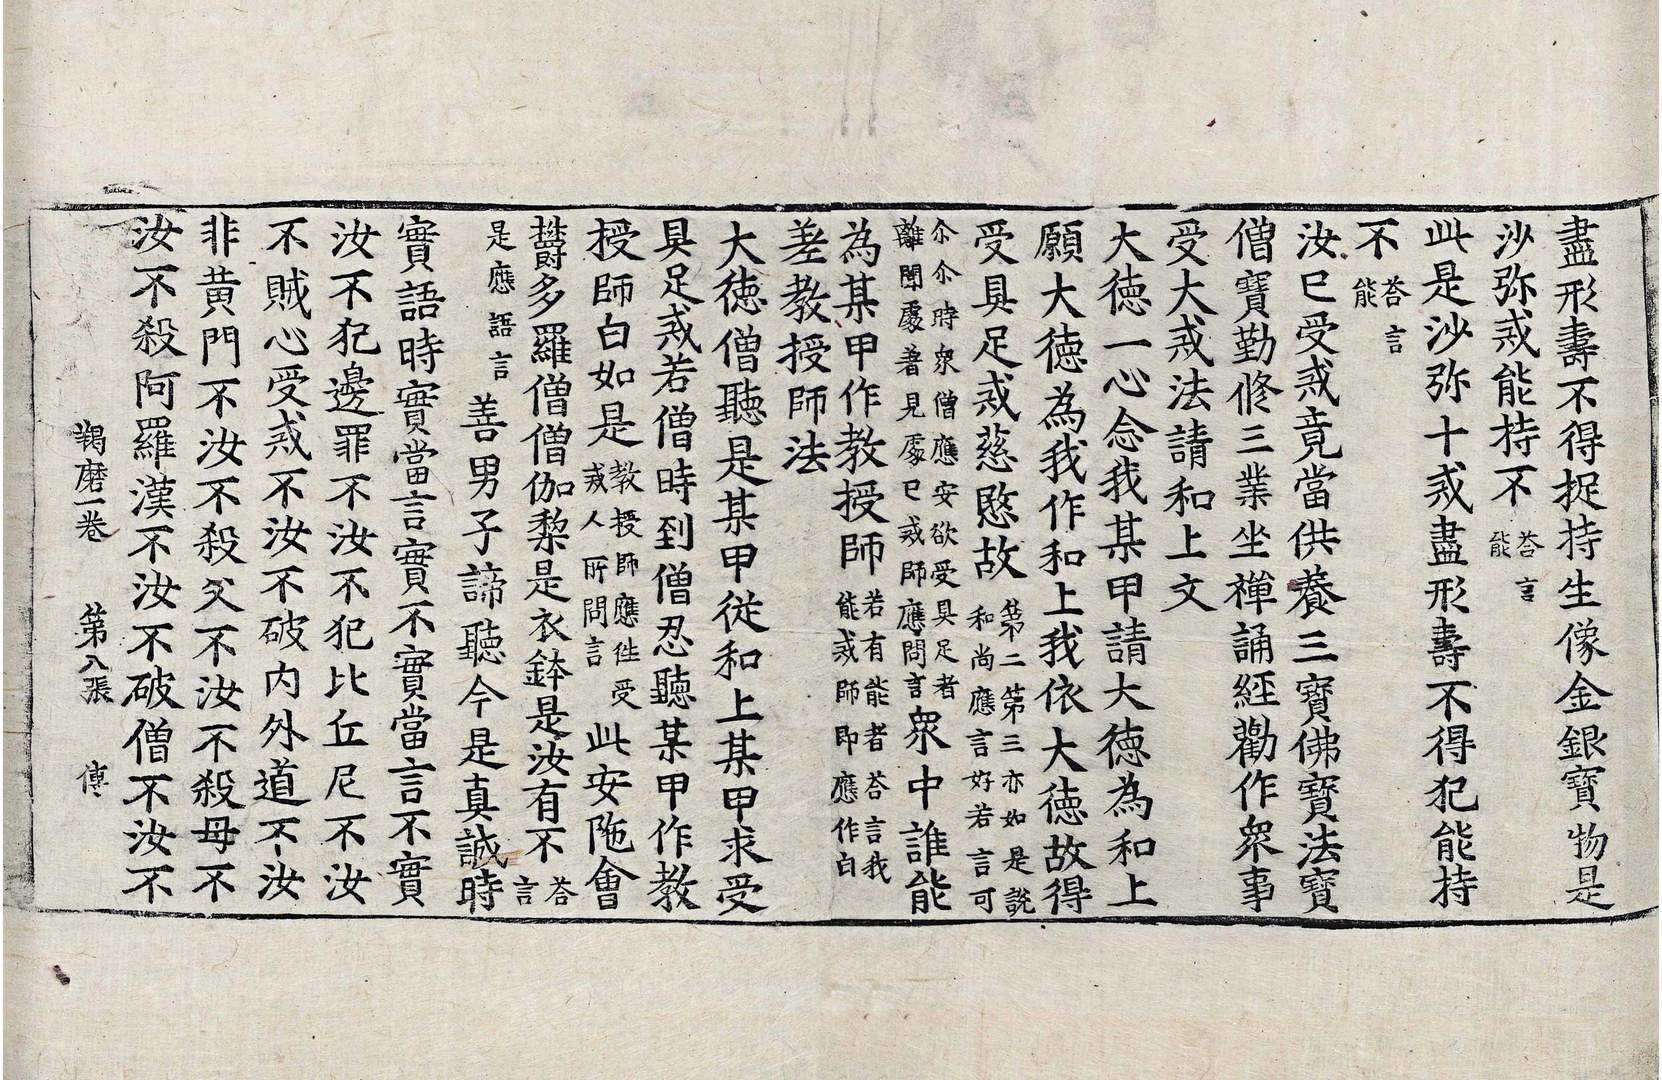 盡形壽不得捉持生像金銀寶物是
沙弥戒能持不答言能
此是沙弥十戒盡形壽不得犯能持
不答言能
汝已受戒竟當供養三寶佛寶法寶
僧寶勤修三業坐禪誦經勸作衆事
受大戒法請和上文
大德一心念我某甲請大德為和上
願大德為我作和上我依大德故得
受具足戒慈愍故第二第三亦如是說和尚應言好若言可
尒尒時衆僧應安欲受具足者離聞處著見處已戒師應問言衆中誰能
為某甲作教授師若有能者答言我能戒師即應作白
差教授師法
大德僧聽是某甲從和上某甲求受
具足戒若僧時到僧忍聽某甲作教
授師白如是教授師應往受戒人所問言此安陁會
欝多羅僧僧伽梨是衣鉢是汝有不答言
是應語言善男子諦聽今是真誠時
實語時實當言實不實當言不實
汝不犯邊罪不汝不犯比丘尼不汝
不賊心受戒不汝不破内外道不汝
非黄門不汝不殺父不汝不殺母不
汝不殺阿羅漢不汝不破僧不汝不
羯磨一卷 第八張 傳